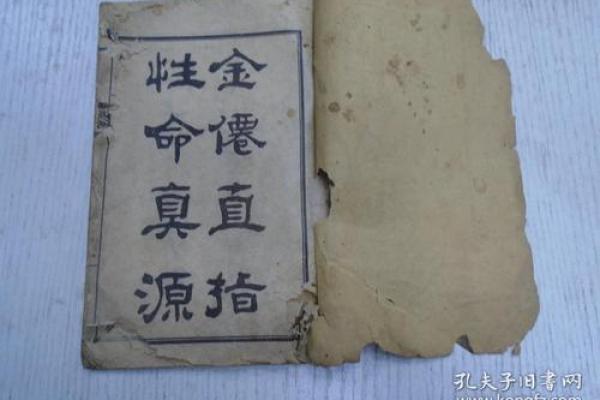 金僊直指
性命真源
孔夫子旧书网